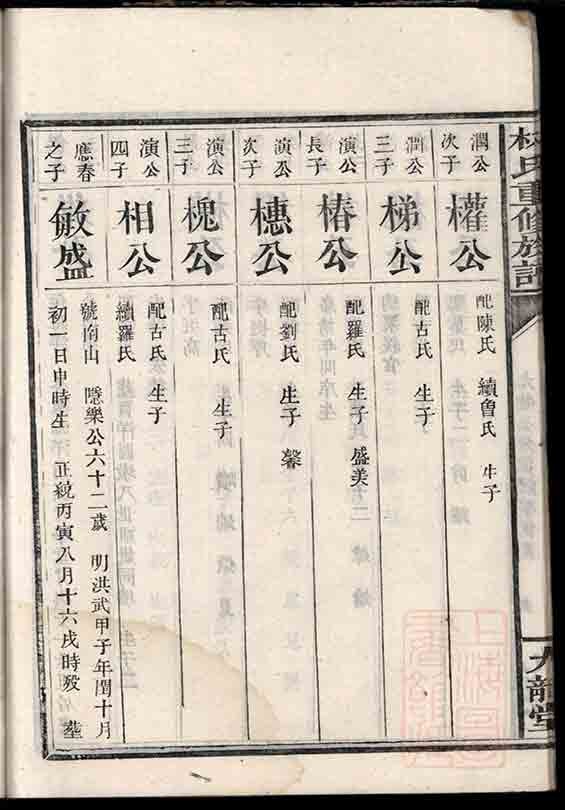 林氏重修族譜
九龍堂
潤公
次子
權公
配陳氏 續魯氏 生子
潤公
三子
梯公
配古氏 生子
演公
長子
椿公
配羅氏 生子 盛美
演公
次子
橞公
配劉氏 生子 馨
演公
三子
槐公
配古氏 生子
演公
四子
相公
配古氏 生子
續羅氏
應春
之子
敏盛
號南山 隱樂公六十二歲 明洪武甲子年閏十月
初一日申時生 正統丙寅八月十六戌時歿 塟
上海圖
書館藏